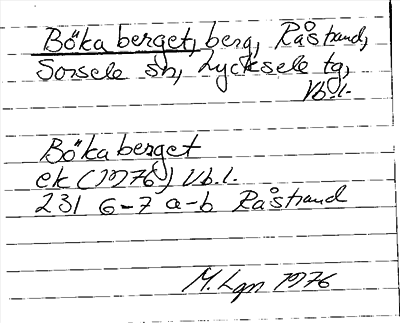 Böka berget, berg, Råstrand,
Sorsele sn, Lycksele tg,
Vb.l.
Böka berget
ek (1976) Vb.l.
231 6-7 a-b Råstrand
M.Lgn 1976